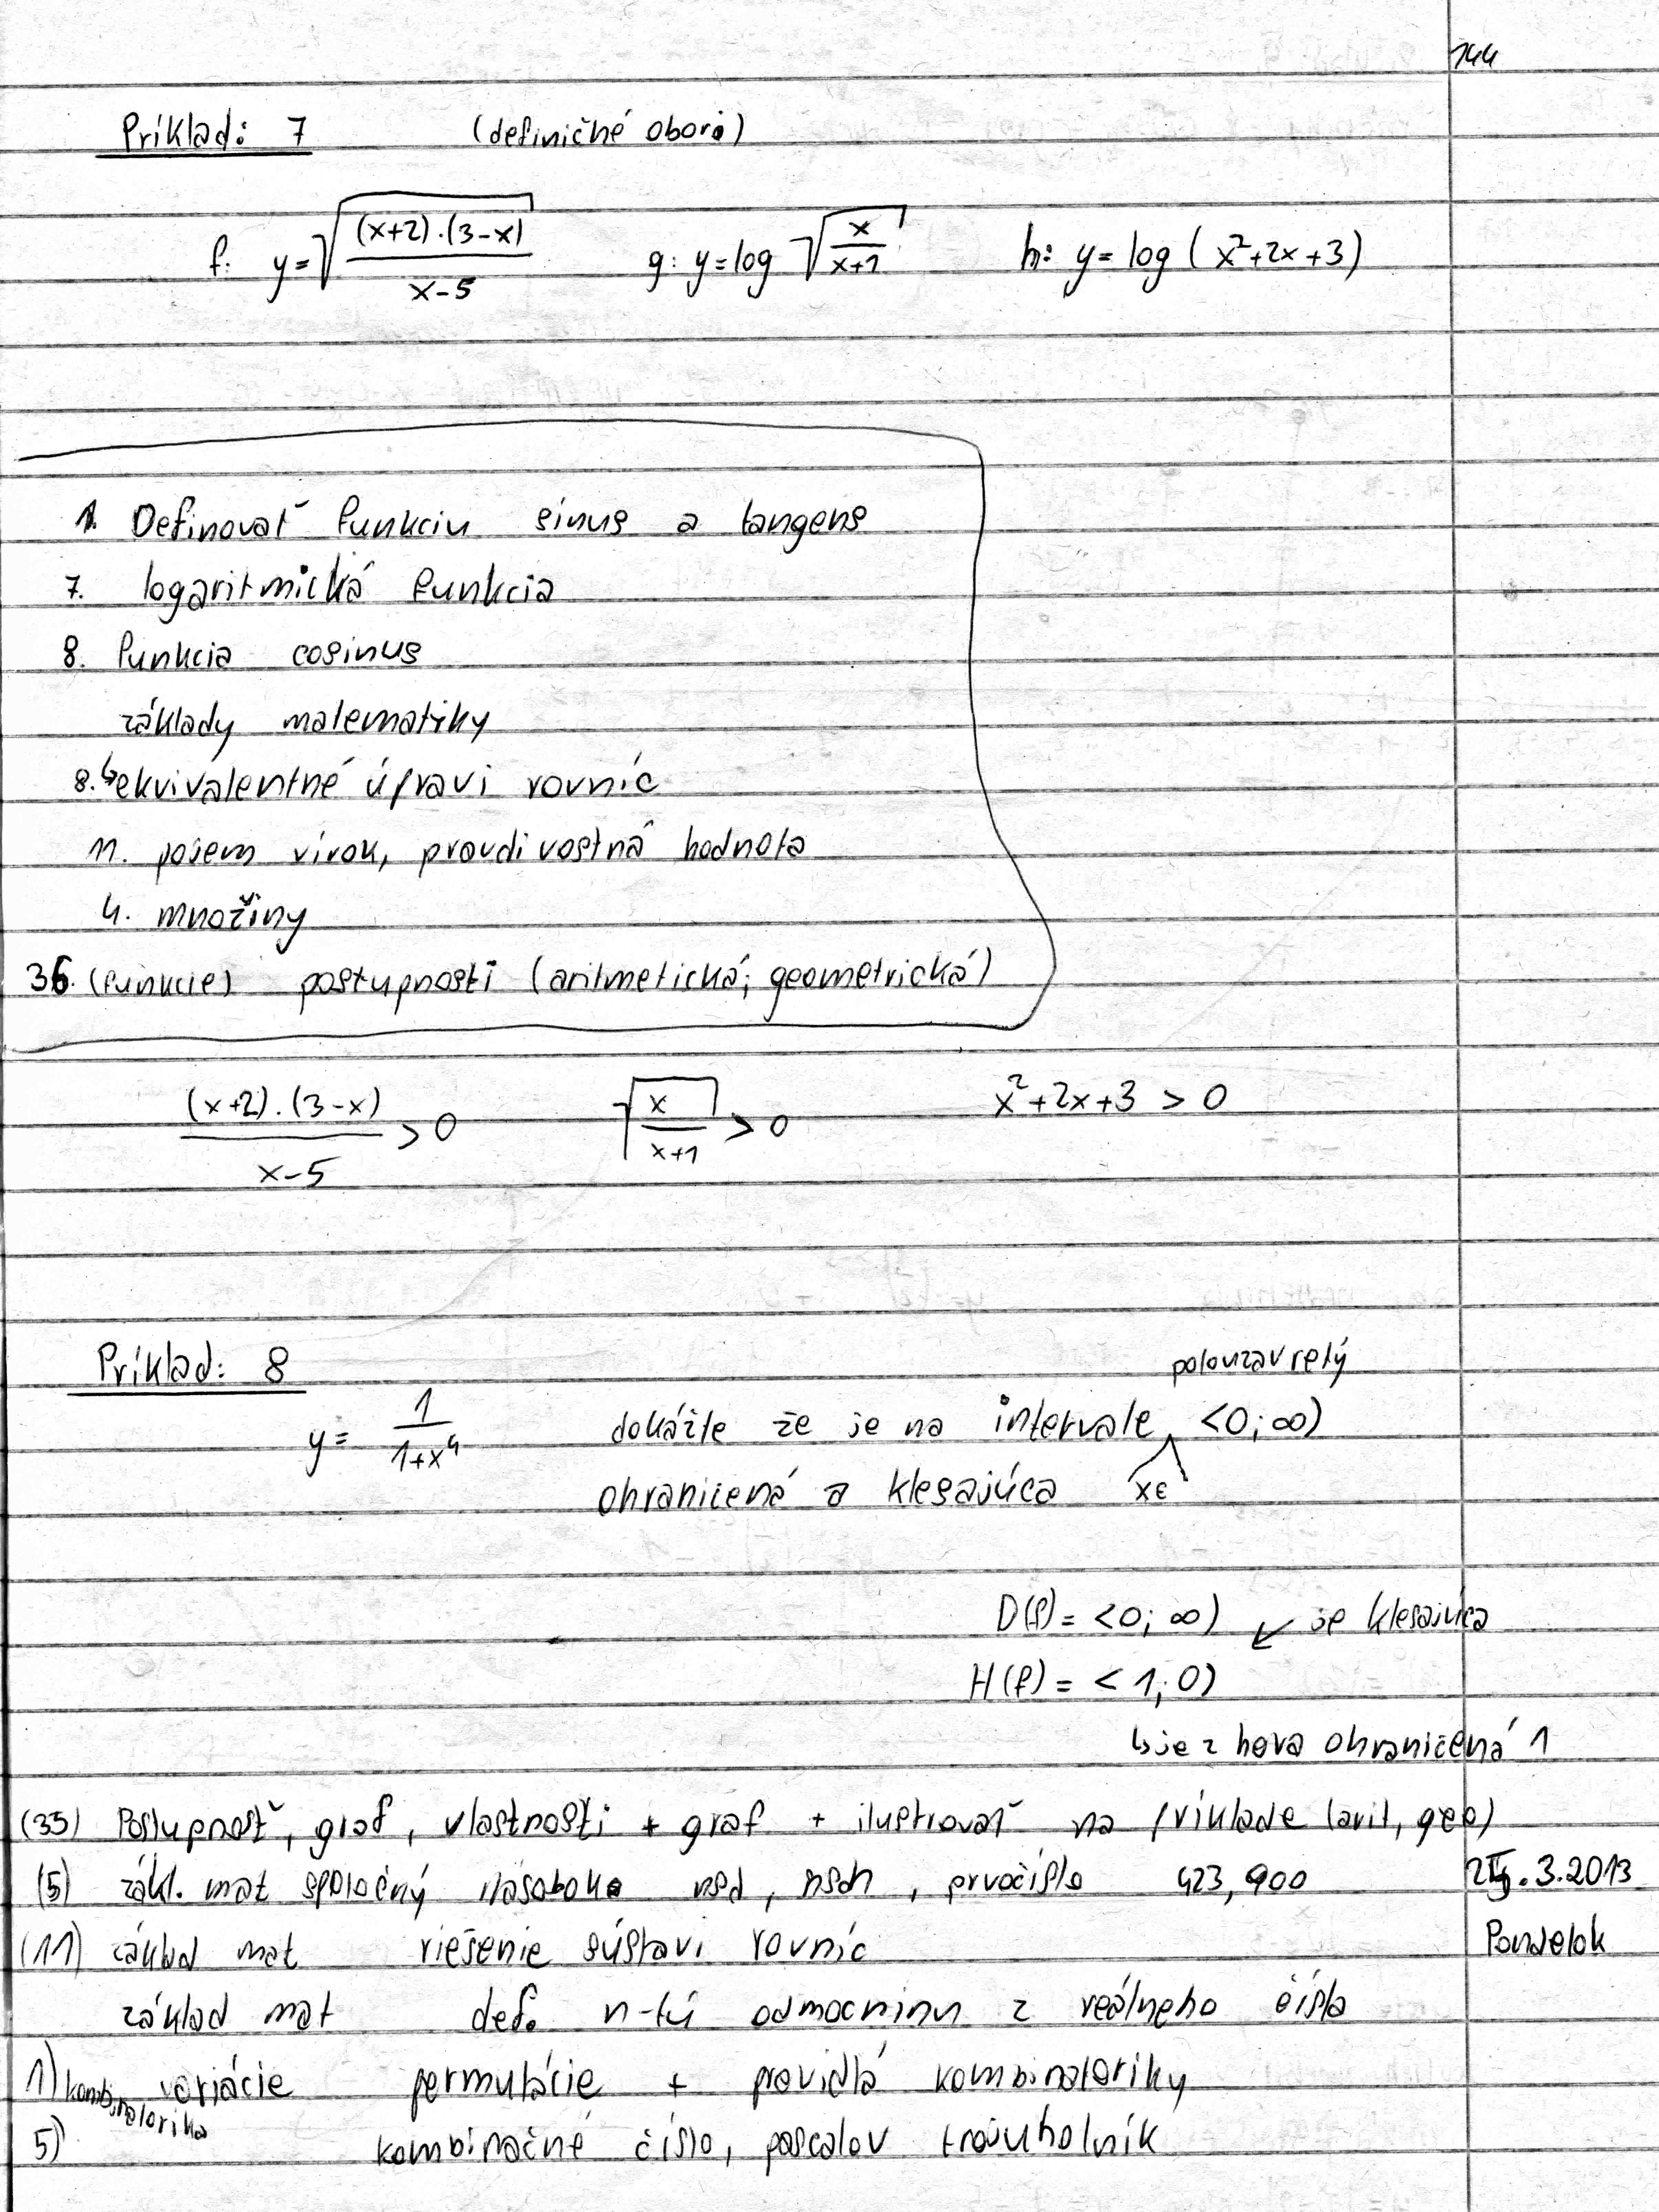 144
Príklad: 7 (definičné obori)
f: y=√((x+2).(3-x)/(x-5)) g: y=log √(x/(x+1)) h: y=log (x²+2x+3)
1. Definovať funkciu sinus a tangens
7. logaritmická funkcia
8. funkcia cosinus
základy matematiky
8. ↳ ekvivalentné úpravi rovníc
11. pojem virok, pravdivostná hodnota
4. množiny
36. (funkcie) postupnosti (aritmetická; geometrická)
((x+2).(3-x))/(x-5) > 0 √(x/(x+1)) > 0 x²+2x+3 > 0
Príklad: 8
polouzavretý
y= 1/(1+x⁴) dokážte že je na intervale <0;∞)
ohranicená a klesajúca x∈
D(f) = <0; ∞) ↙ je klesajúca
H(f) = <1; 0)
↳ je z hora ohraničená 1
(35) Postupnosť, graf, vlastnosti + graf + ilustrovať na príklade (arit, geo)
(5) zákl. mat spoločný násobok nsd, nsn, prvočíslo 423, 900
.3.2013
(11) základ mat riešenie sústavi rovníc
Pondelok
základ mat def. n-tú odmocninu z reálneho čísla
1) kombinatorika variácie permutácie + pravidlá kombinatoriky
5) kombinačné číslo, pascalov trojuholník